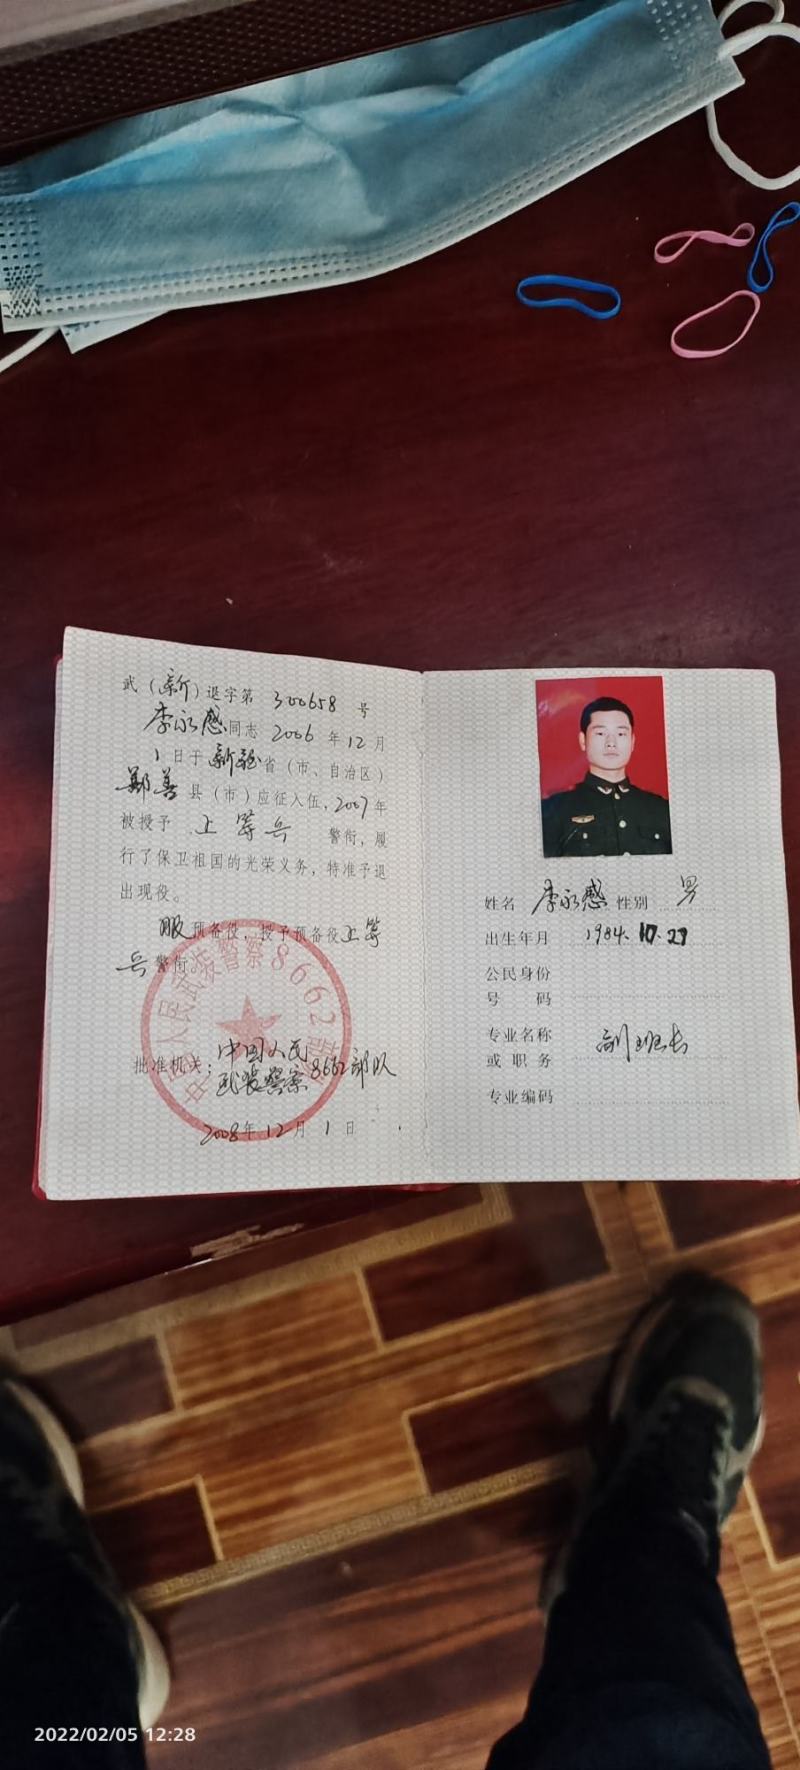 武（新）退字第 300658 号
李永感同志 2006 年 12 月
1 日于新疆省（市、自治区）
鄯善县（市）应征入伍，2007年
被授予 上等兵 警衔，履
行了保卫祖国的光荣义务，特准予退
出现役。
服预备役，授予预备役上等
兵警衔。
中国人民武装警察8662部队
批准机关：中国人民
武装警察8662部队
2008年12月1日
姓名 李永感 性别 男
出生年月 1984.10.27
公民身份
号 码
专业名称
或职务 副班长
专业编码
2022/02/05 12:28